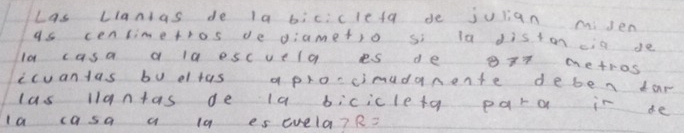 Las Llantas de la bicicleta de julian miden
as centimetros de diametro si la distancia de
la casa a la escuela es de 877 metros
icuantas bueltas aproccimadamente deben dar
las llantas de la bicicleta para ir de
la casa a la escuela?R=